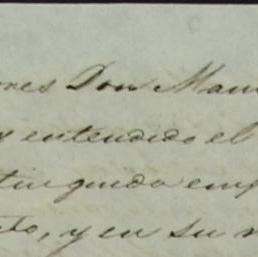 ores Don Man
entendido el
tinguido emp
to, y en su